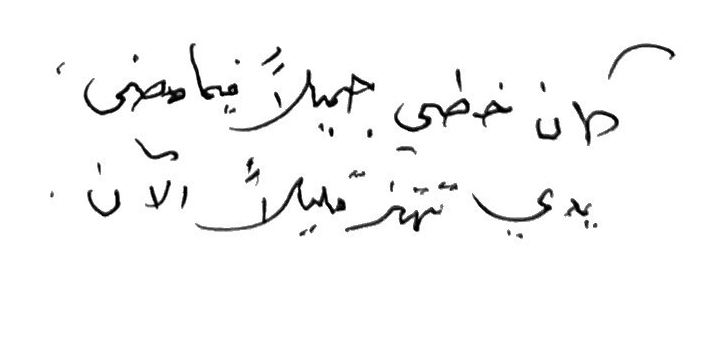 كان خطي جميلاً فيما مضى،
يدي تهتز قليلاً الآن.